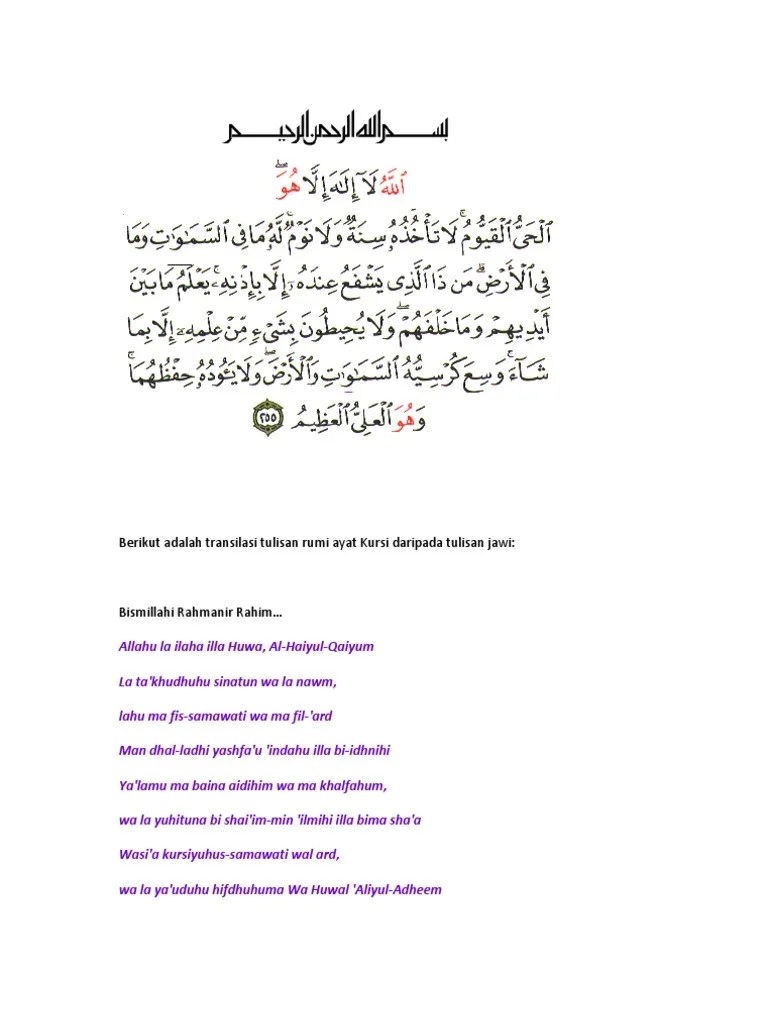 بسم الله الرحمن الرحيم
ٱللَّهُ لَآ إِلَٰهَ إِلَّا هُوَ ۖ
ٱلْحَىُّ ٱلْقَيُّومُ ۚ لَا تَأْخُذُهُۥ سِنَةٌ وَلَا نَوْمٌ ۚ لَّهُۥ مَا فِى ٱلسَّمَٰوَٰتِ وَمَا
فِى ٱلْأَرْضِ ۗ مَن ذَا ٱلَّذِى يَشْفَعُ عِندَهُۥٓ إِلَّا بِإِذْنِهِۦ ۚ يَعْلَمُ مَا بَيْنَ
أَيْدِيهِمْ وَمَا خَلْفَهُمْ ۖ وَلَا يُحِيطُونَ بِشَىْءٍ مِّنْ عِلْمِهِۦٓ إِلَّا بِمَا
شَآءَ ۚ وَسِعَ كُرْسِيُّهُ ٱلسَّمَٰوَٰتِ وَٱلْأَرْضَ ۖ وَلَا يَـُٔودُهُۥ حِفْظُهُمَا ۚ
وَهُوَ ٱلْعَلِىُّ ٱلْعَظِيمُ ٢٥٥
Berikut adalah transilasi tulisan rumi ayat Kursi daripada tulisan jawi:
Bismillahi Rahmanir Rahim...
Allahu la ilaha illa Huwa, Al-Haiyul-Qaiyum
La ta'khudhuhu sinatun wa la nawm,
lahu ma fis-samawati wa ma fil-'ard
Man dhal-ladhi yashfa'u 'indahu illa bi-idhnihi
Ya'lamu ma baina aidihim wa ma khalfahum,
wa la yuhituna bi shai'im-min 'ilmihi illa bima sha'a
Wasi'a kursiyuhus-samawati wal ard,
wa la ya'uduhu hifdhuhuma Wa Huwal 'Aliyul-Adheem